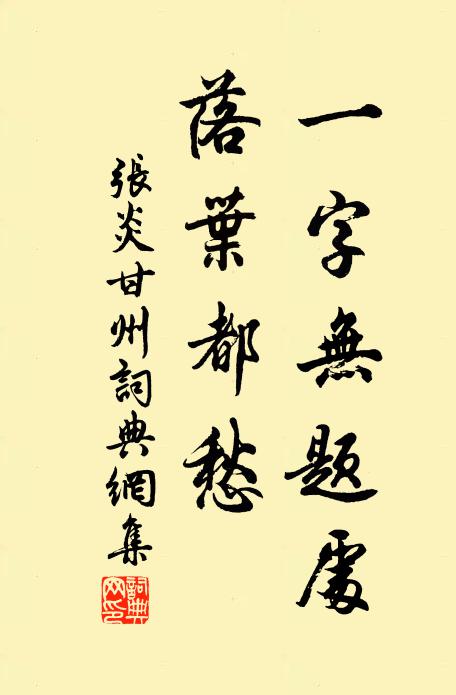 一字無題處
落葉都愁
張炎甘州詞典網集
詞典网印